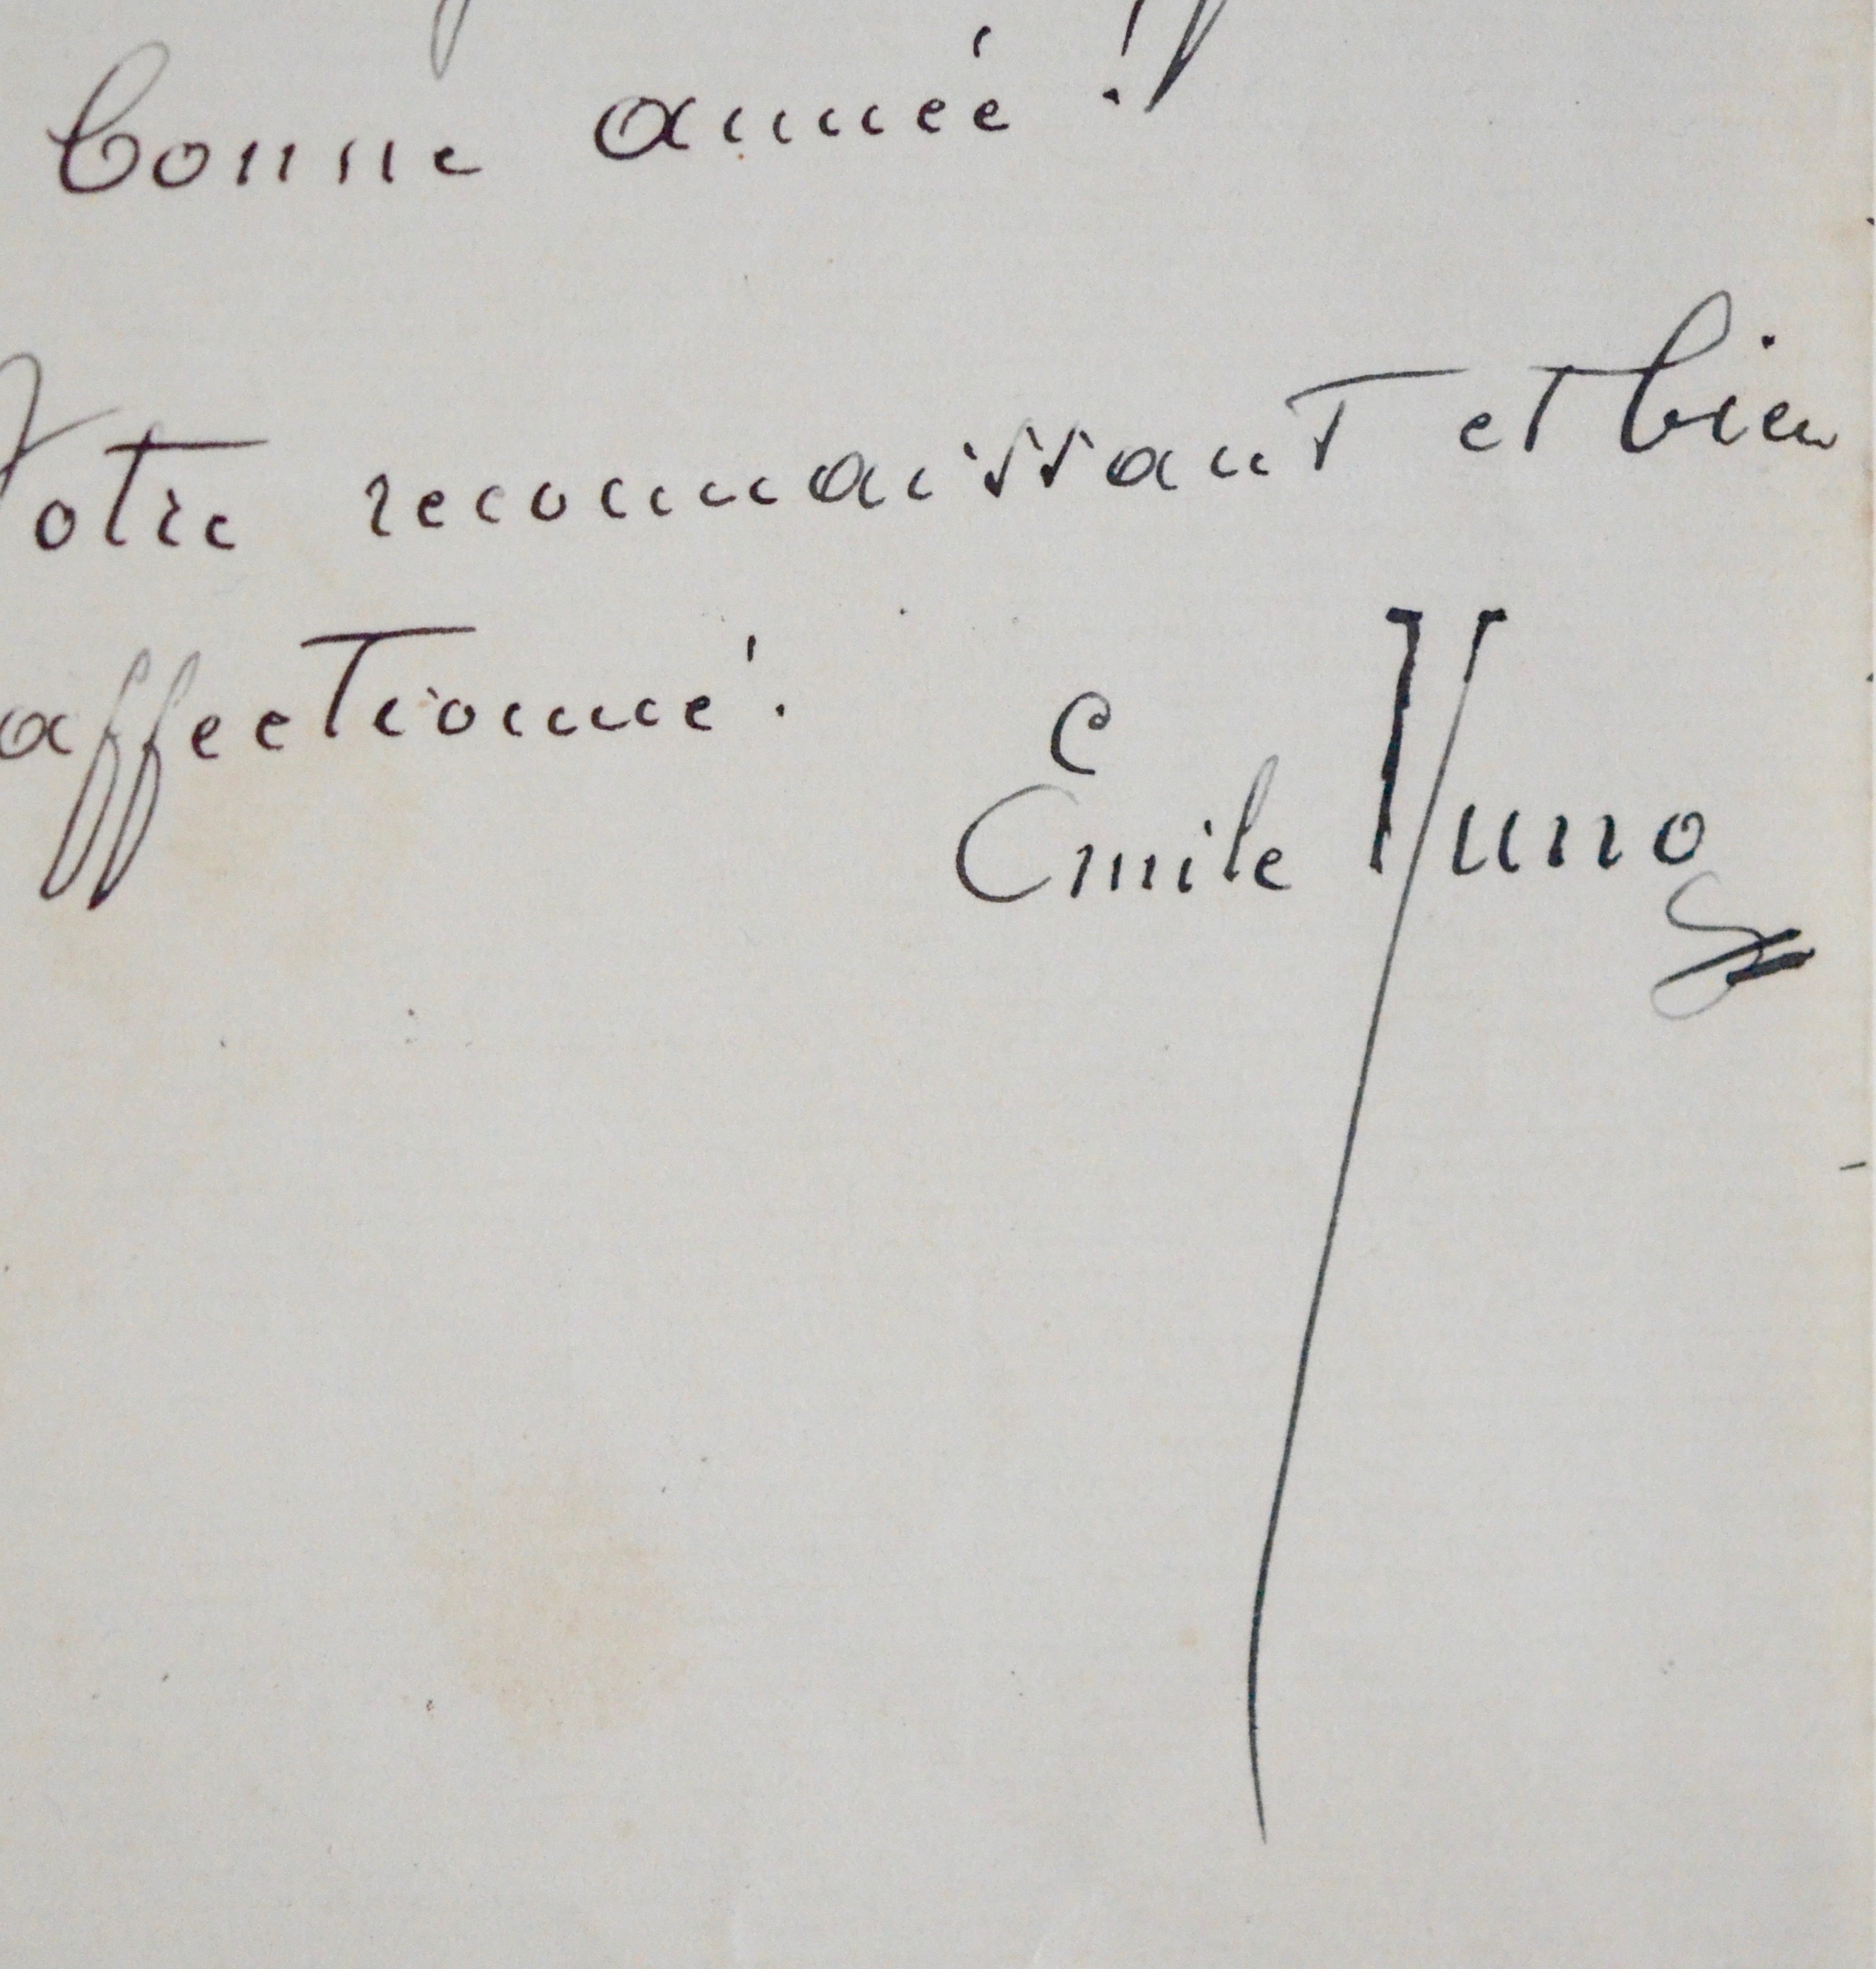 bonne année !
Votre reconnaissant et bien
affectionné.
Emile